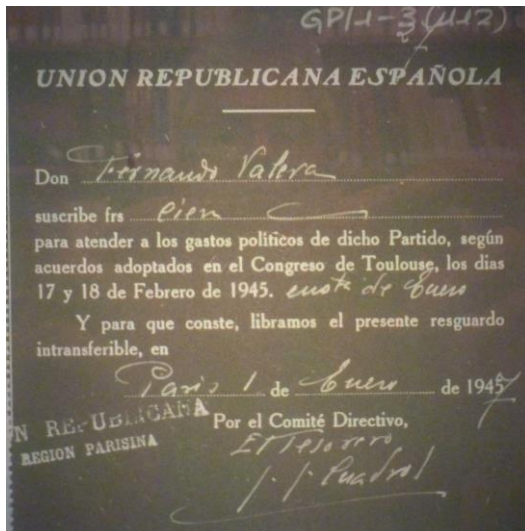 GP/1-3 (112)
UNION REPUBLICANA ESPAÑOLA
Don Fernando Valera
suscribe frs cien
para atender a los gastos políticos de dicho Partido, según
acuerdos adoptados en el Congreso de Toulouse, los dias
17 y 18 de Febrero de 1945. cuota de Enero
Y para que conste, libramos el presente resguardo
intransferible, en
Paris 1 de Enero de 1947
N REPUBLICANA
REGION PARISINA
Por el Comité Directivo,
El Tesorero